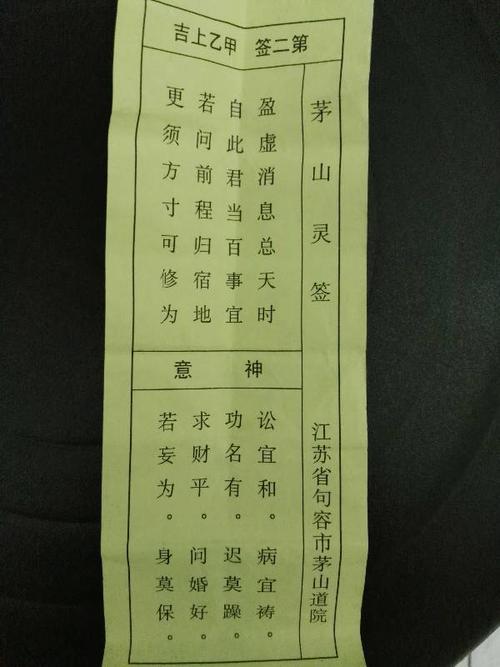 第二签 甲乙上吉
茅山灵签
江苏省句容市茅山道院
盈虚消息总天时
自此君当百事宜
若问前程归宿地
更须方寸可修为
神意
讼宜和。病宜祷。
功名有。迟莫躁。
求财平。问婚好。
若妄为。身莫保。